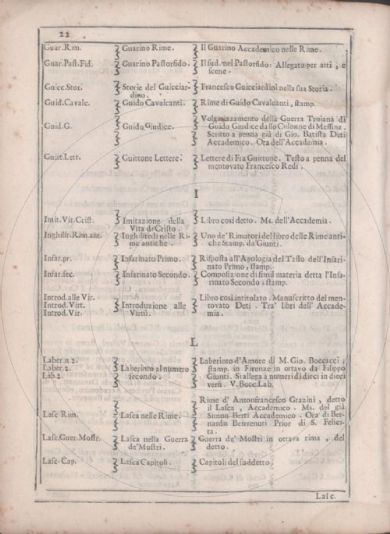 22
Guar. Rim. Guarino Rime. Il Guarino Accademico nelle Rime.
Guar. Past. Fid. Guarino Pastorfido. Il sud. nel Pastorfido: Allegato per atti, e
scene.
Guicc. Stor. Storie del Guicciar-
dino. Francesco Guicciardini nella sua Storia.
Guid. Cavalc. Guido Cavalcanti. Rime di Guido Cavalcanti, stamp.
Guid. G. Guido Giudice. Volgarizzamento della Guerra Troiana di
Guido Giudice dalle Colonne di Messina.
Scritto a penna già di Gio. Batista Deti
Accademico. Ora dell'Accademia.
Guitt. Lett. Guittone Lettere. Lettere di Fra Guittone. Testo a penna del
mentovato Francesco Redi.
I
Imit. Vit. Crist. Imitazione della
Vita di Cristo. Libro così detto. Ms. dell'Accademia.
Inghilfr. Rim. ant. Inghilfredi nelle Ri-
me antiche. Uno de' Rimatori del libro delle Rime anti-
che stamp. da' Giunti.
Infar. pr. Infarinato Primo. Risposta all'Apologia del Tasso dell'Infari-
nato Primo, stamp.
Infar. sec. Infarinato Secondo. Composizione di simil materia detta l'Infa-
rinato Secondo, stamp.
Introd. alle Vir.
Introd. Virt.
Introd. Vir. Introduzione alle
Virtù. Libro così intitolato. Manuscritto del men-
tovato Deti. Tra' libri dell'Accade-
mia.
L
Laber. n 2.
Laber. 2.
Lab. 2 Laberinto al numero
secondo. Laberinto d'Amore di M. Gio. Boccacci,
stamp. in Firenze in ottavo da Filippo
Giunti. Si allega a numeri di dieci in dieci
versi. V. Bocc. Lab.
Lasc. Rim. Lasca nelle Rime. Rime d'Antonfrancesco Grazini, detto
il Lasca, Accademico. Ms. del già
Simon Berti Accademico. Ora di Ber-
nardo Benvenuti Prior di S. Felici-
ta.
Lasc. Guer. Mostr. Lasca nella Guerra
de' Mostri. Guerra de' Mostri in ottava rima, del
detto.
Lasc. Cap. Lasca Capitoli. Capitoli del suddetto.
Lasc.